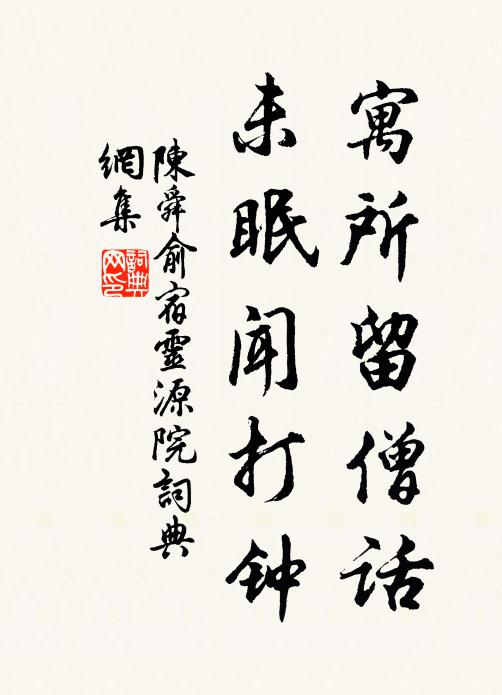 寓所留僧话
未眠闻打钟
陳舜俞宿靈源院詞典
網集
詞典
网印